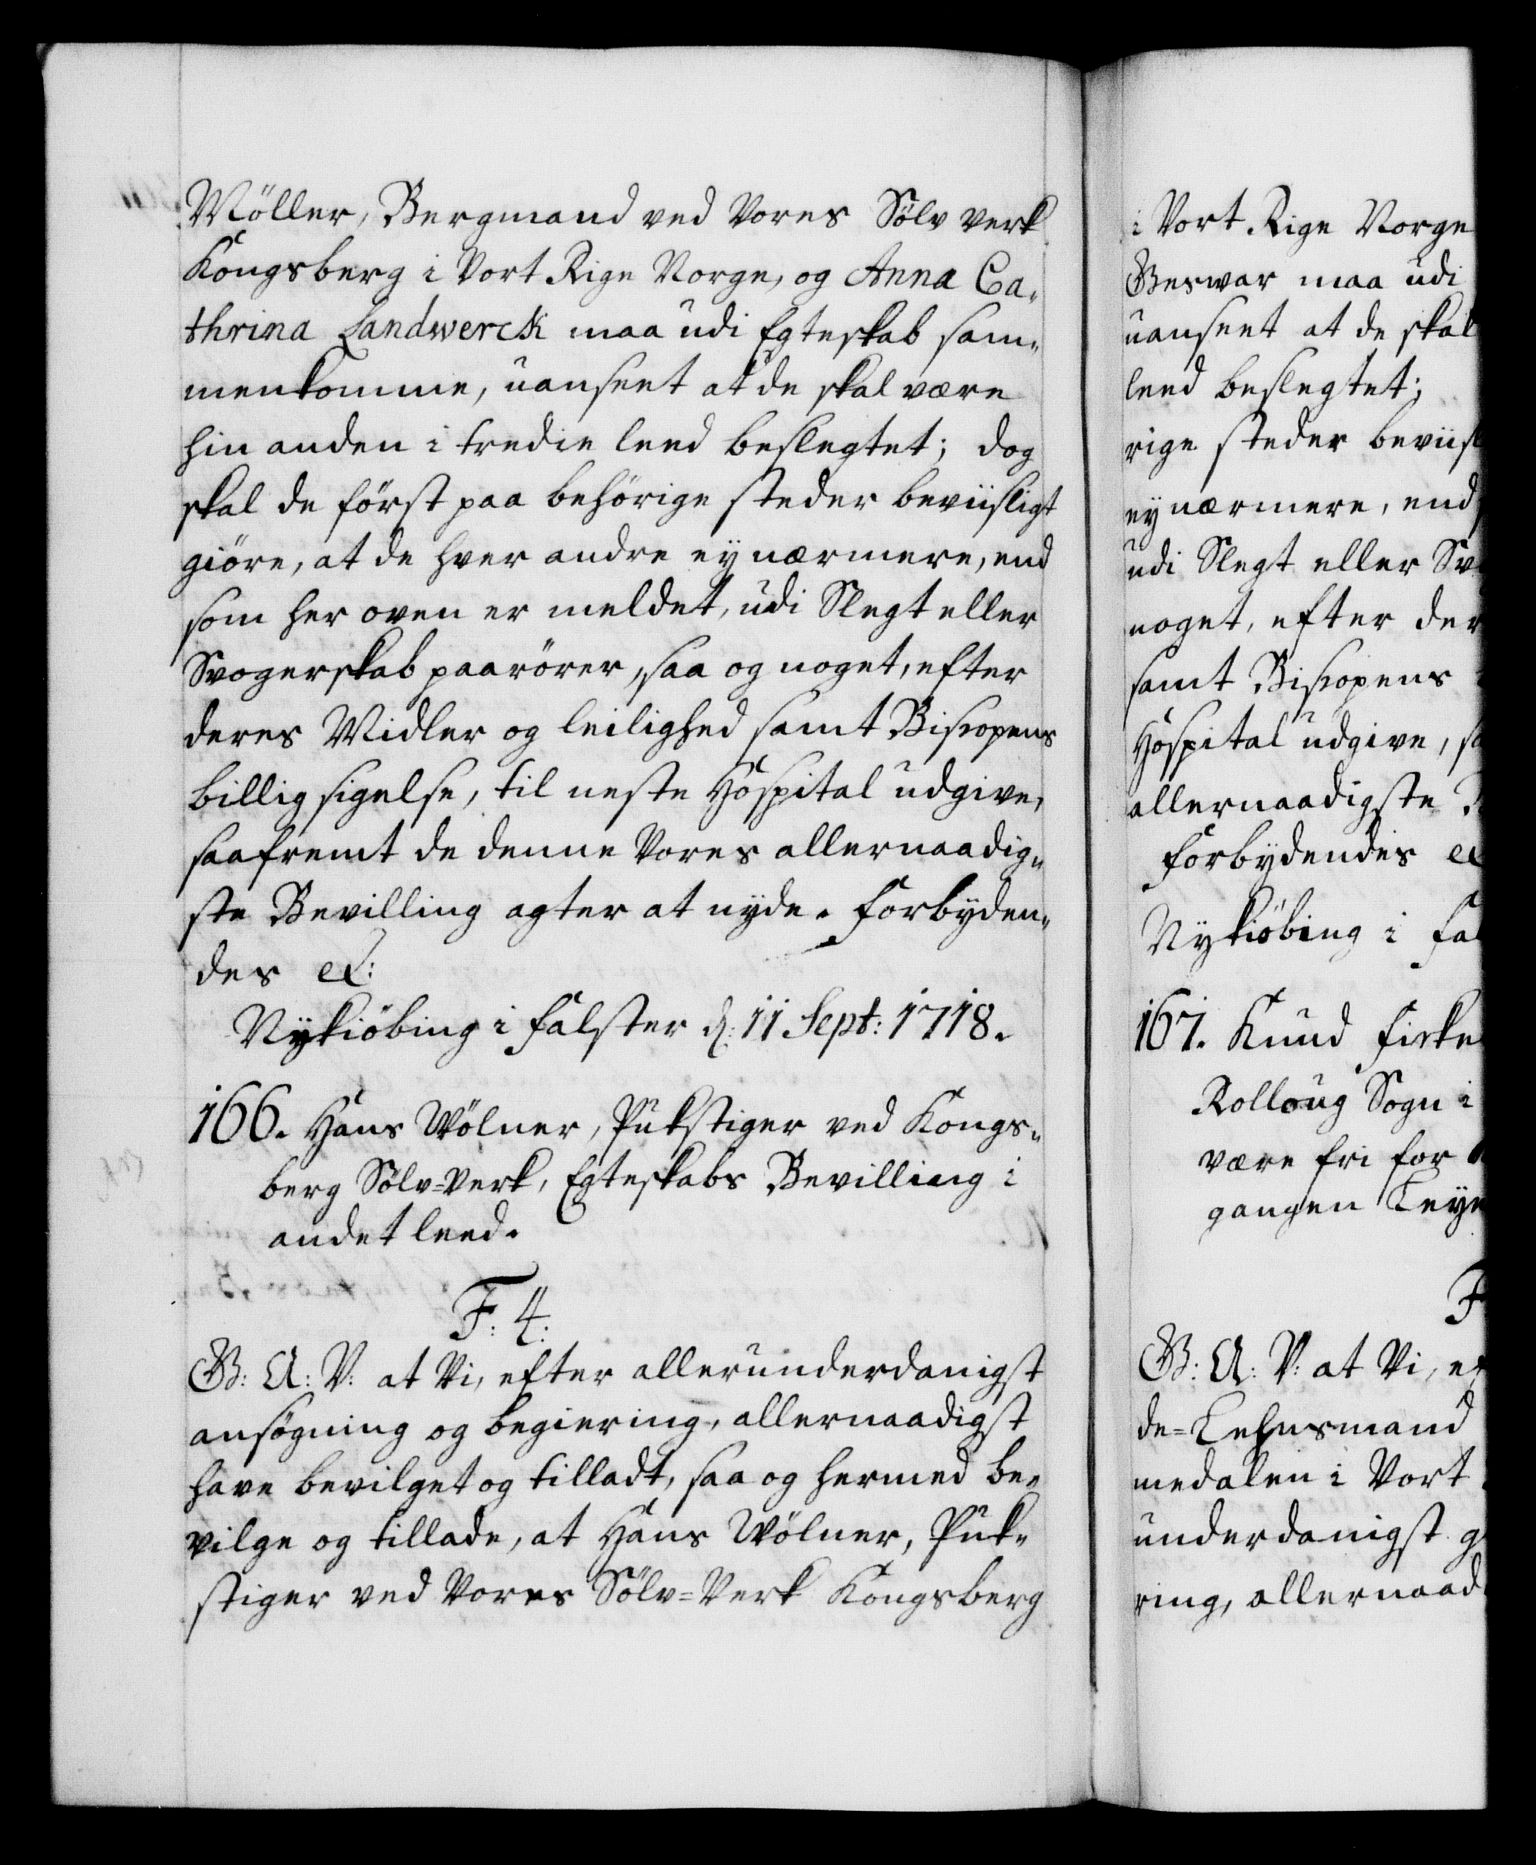 Möller, Bergmand ved Vores Sölv verk
Kongsberg i Vort Rige Norge, og Anna Ca-
thrina Landwerck maa udi Egteskab sam-
menkomme, uanseet at de skal være
hin anden i tredie leed beslegtet; dog
skal de först paa behörige steder beviisligt
giöre, at de hver andre ey nærmere, end
som her oven er meldet, udi Slegt eller
Svogerskab paarörer, saa og noget, efter
deres Midler og leilighed samt Biscopens
billig sigelse, til neste Hospital udgive,
saafremt de denne Vores allernaadig-
ste Bevilling agter at nyde. Forbyden-
des etc:
Nykiöbing i Falster d: 11 Sept: 1718.
166. Hans Wölner, Pukstiger ved Kongs-
berg Sölv-Verk, Egteskabs Bevilling i
andet leed.
F: 4:
G: A: V: at Vi, efter allerunderdanigst
ansögning og begiering, allernaadigst
have bevilget og tilladt, saa og hermed be-
vilge og tillade, at Hans Wölner, Puk-
stiger ved Vores Sölv-Verk Kongsberg
i Vort Rige Norge
Beswar maa udi
uanseet at de skal
leed beslegtet;
rige steder beviisl
ey nærmere, end
udi Slegt eller Sv
noget, efter der
samt Biscopens
Hospital udgive, sa
allernaadigste B
Forbydendes
Nykiöbing i Fal
167. Knud Fiske
Rolloug Sogn i
være fri for
gangen Leye
F
G: A: V: at Vi, ef
de-Lehnsmand
medalen i Vort
underdanigst g
ring, allernaad